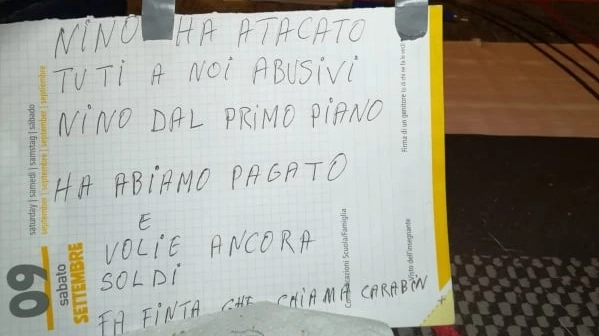 NINO HA ATACATO
TUTI A NOI ABUSIVI
NINO DAL PRIMO PIANO
HA ABIAMO PAGATO
E
VOLIE ANCORA
SOLDI
FA FINTA CHE CHIAMA CARABIN
09
sabato
SETTEMBRE
saturday | samedi | samstag | sábado
september | septembre | september | septiembre
Comunicazioni Scuola/Famiglia
Firma di un genitore
Visto dell'insegnante